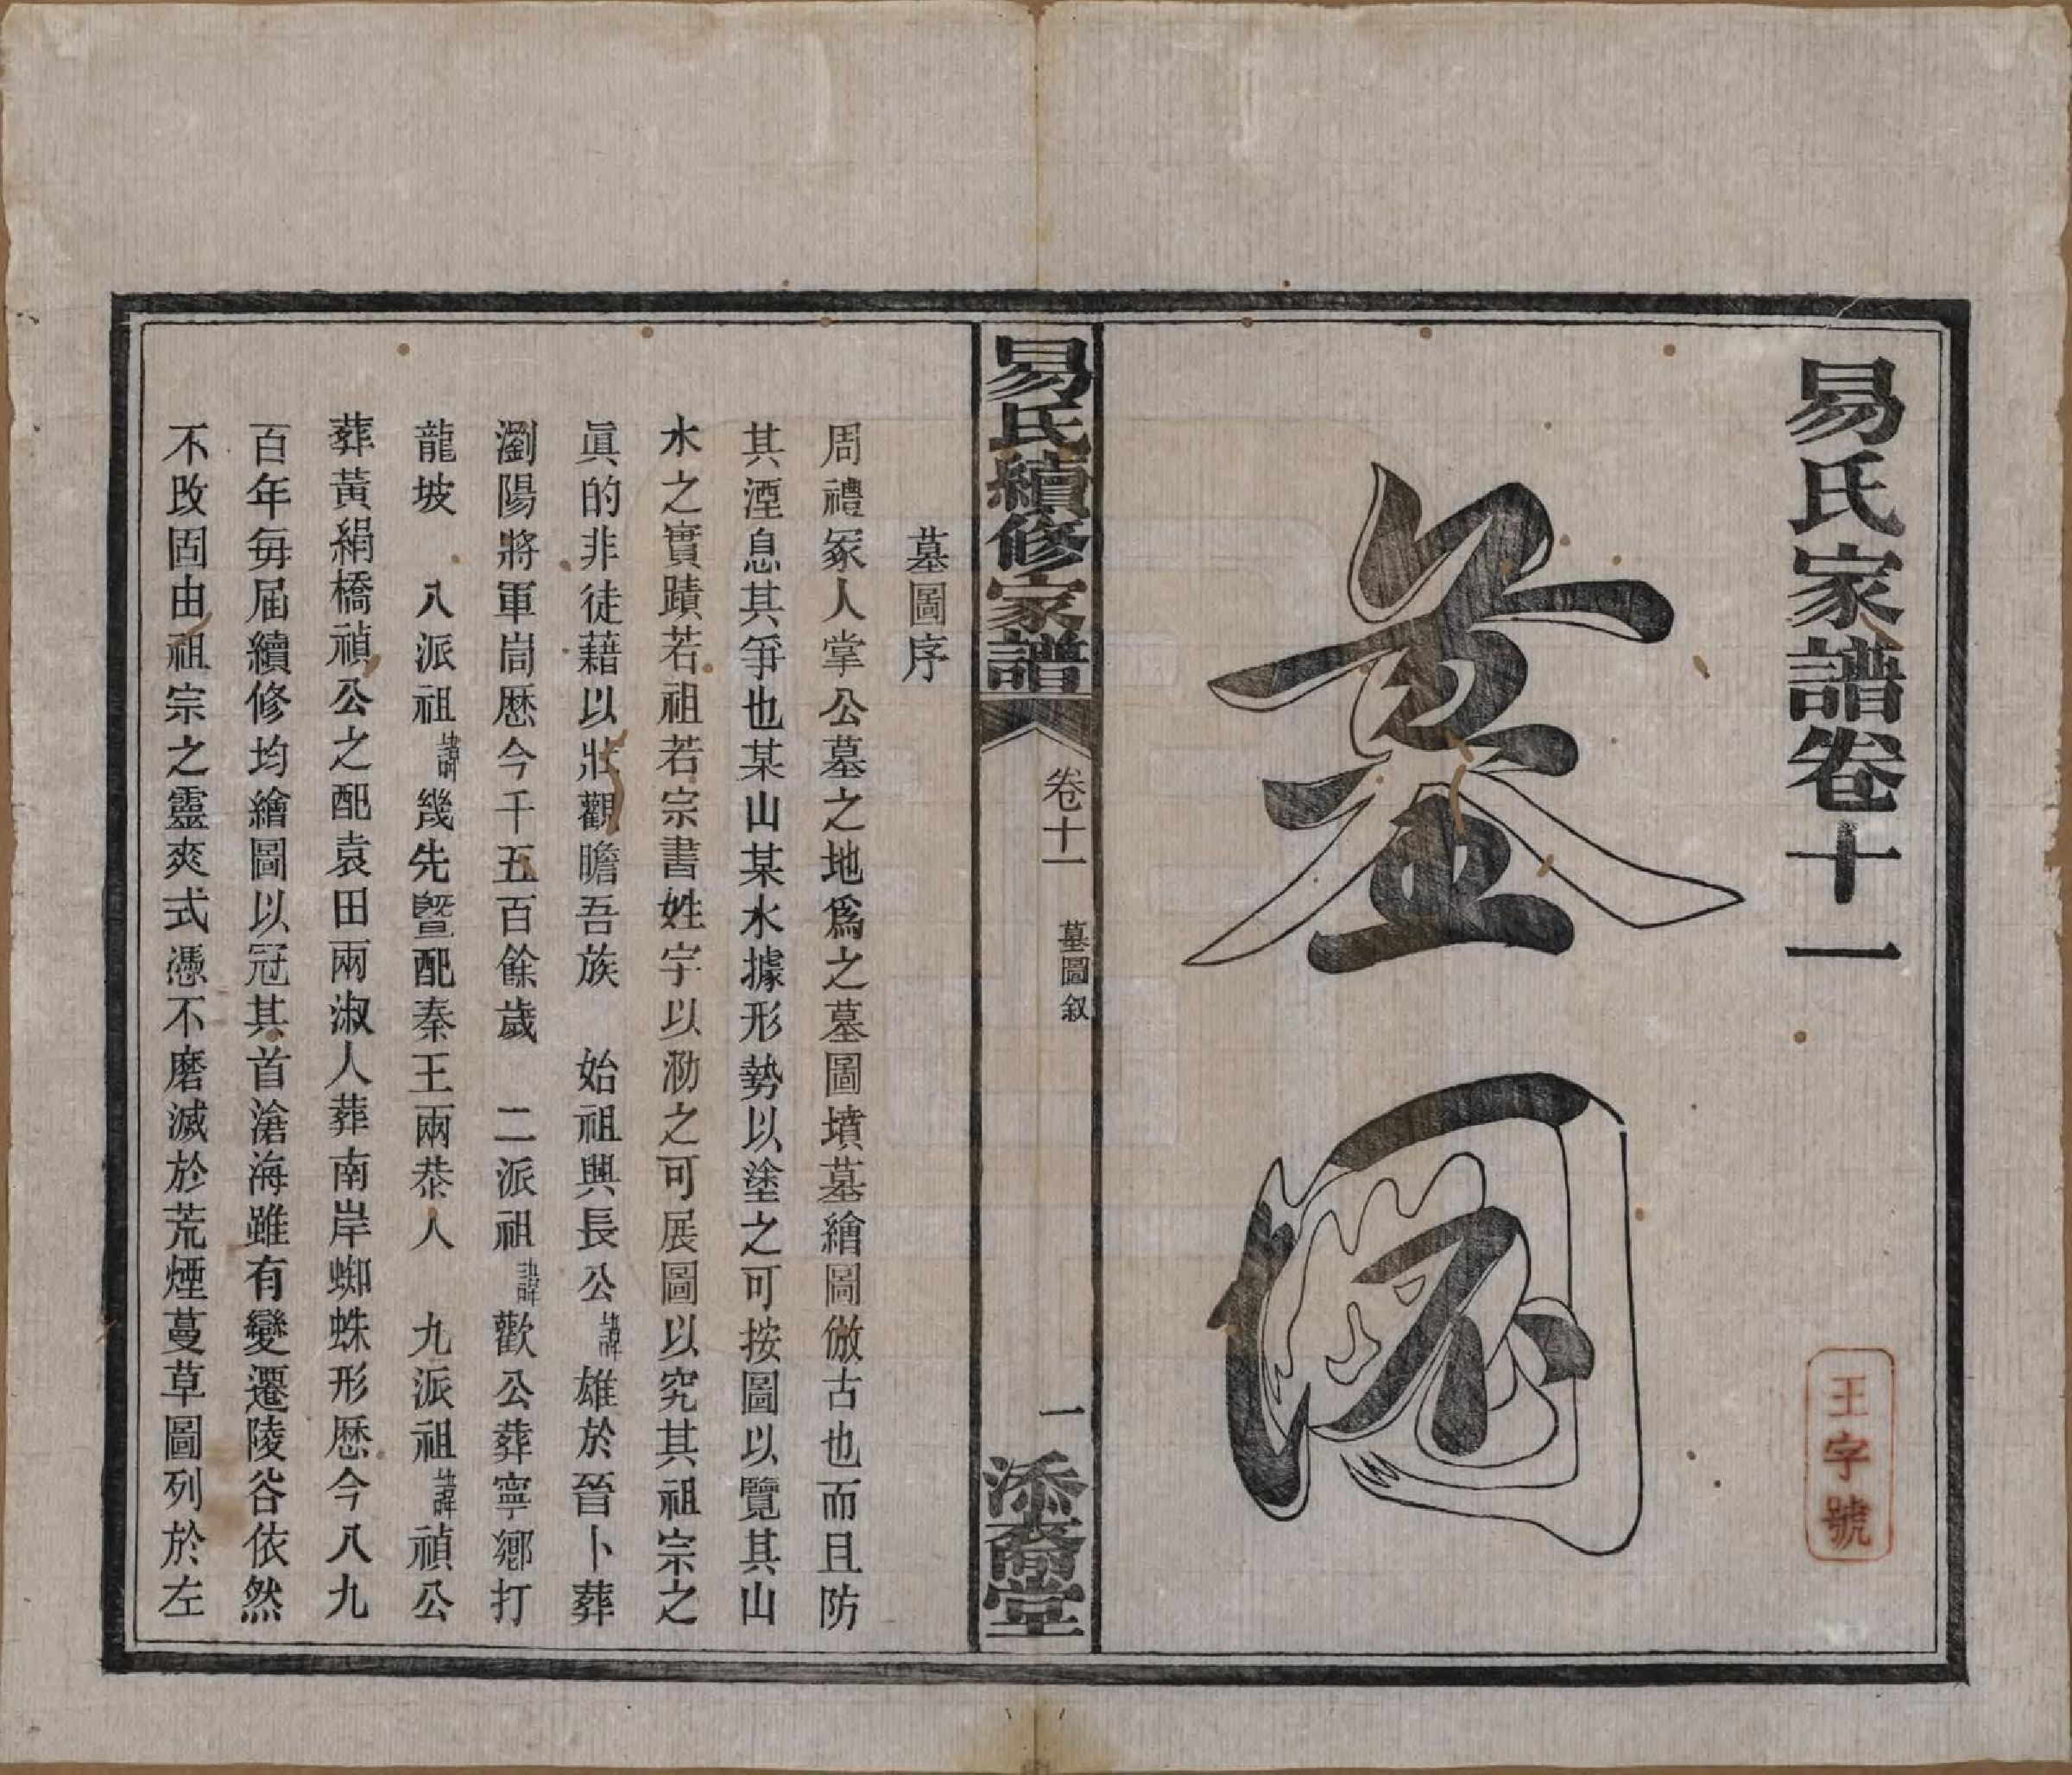 易氏家譜卷十一
王字號
墓圖
易氏續修家譜
卷十一
墓圖叙
一
添裔堂
墓圖序
周禮冢人掌公墓之地爲之墓圖墳墓繪圖倣古也而且防
其湮息其爭也某山某水據形勢以塗之可按圖以覽其山
水之實蹟若祖若宗書姓字以泐之可展圖以究其祖宗之
眞的非徒藉以壯觀瞻吾族　始祖興長公諱雄於晉卜葬
瀏陽將軍峝歷今千五百餘歲　二派祖諱歡公葬寧鄉打
龍坡　八派祖諱幾先暨配秦王兩恭人　九派祖諱禎公
葬黃絹橋禎公之配袁田兩淑人葬南岸蜘蛛形歷今八九
百年每届續修均繪圖以冠其首滄海雖有變遷陵谷依然
不改固由祖宗之靈爽式憑不磨滅於荒煙蔓草圖列於左